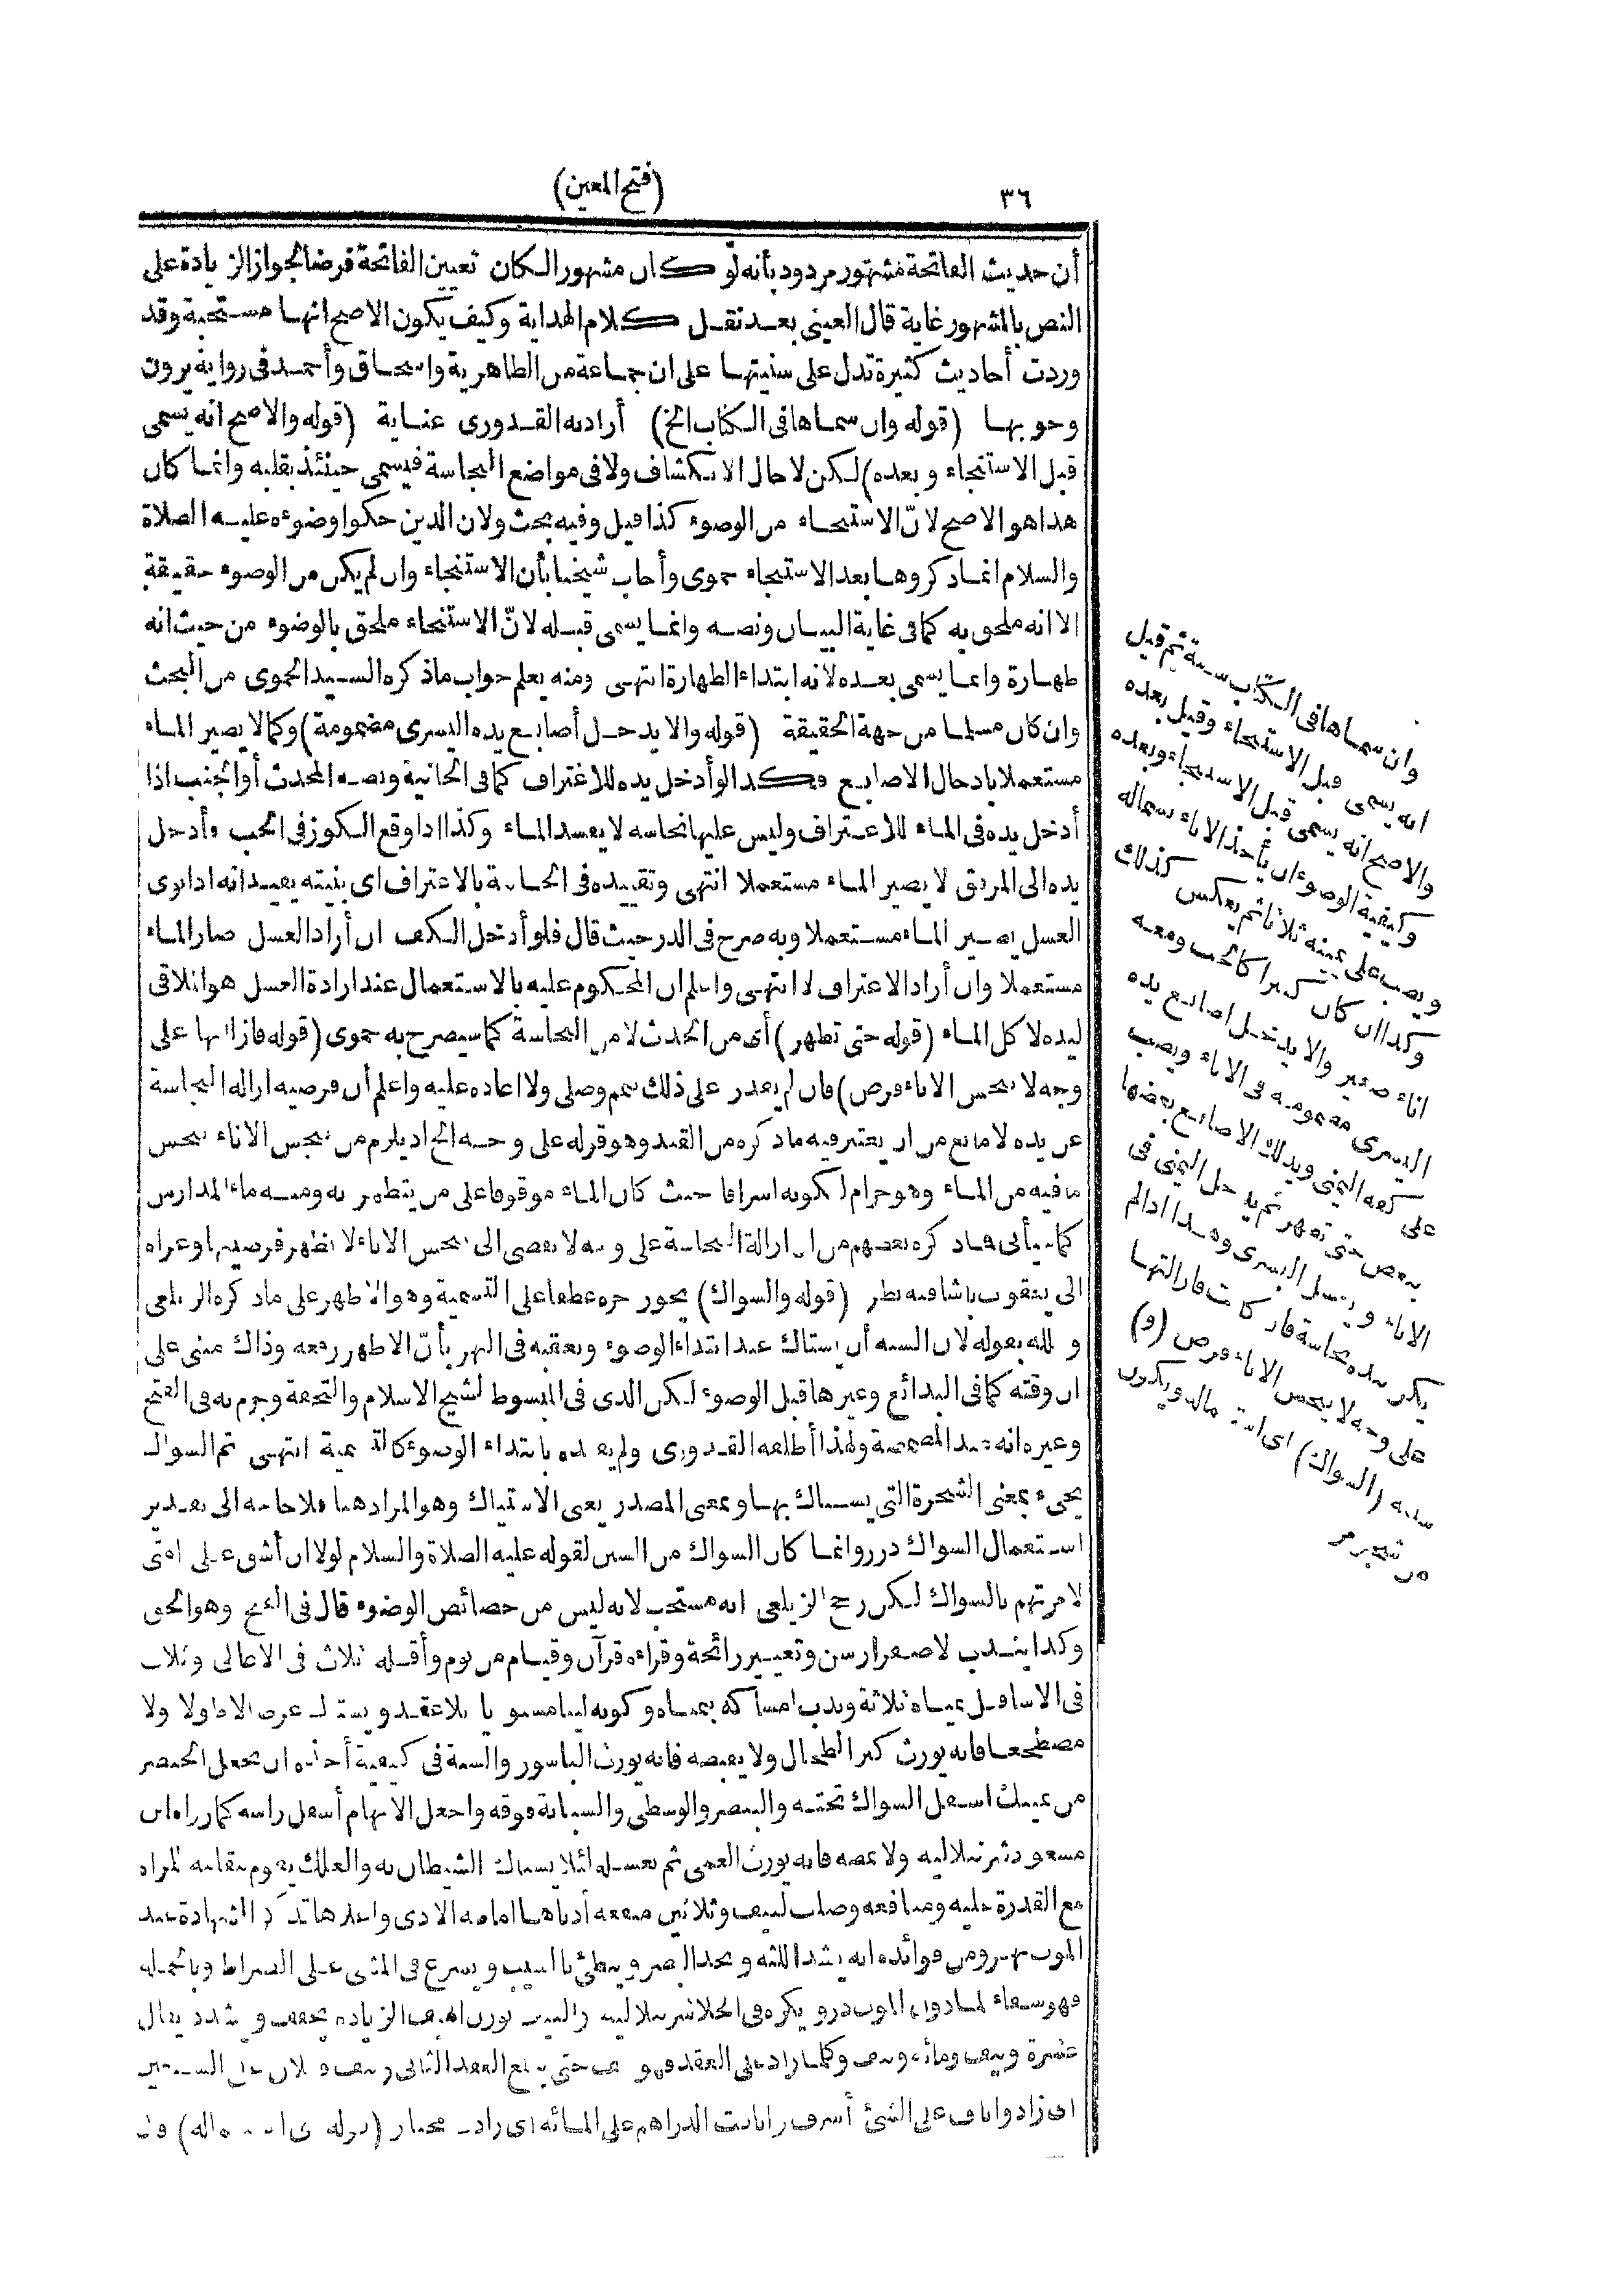 ٣٦
(فتح المعين)
أن حديث الفاتحة مشهور مردود بأنه لو كان مشهورا لكان تعيين الفاتحة فرضا لجواز الزيادة على
النص بالمشهور غاية قال العيني بعد نقل كلام الهداية وكيف يكون الاصح انها مستحبة وقد
وردت أحاديث كثيرة تدل على سنيتها على ان جماعة من الظاهرية واسحاق وأحمد في رواية يرون
وجوبها (قوله وان سماها في الكتاب الخ) أراد به القدورى عناية (قوله والاصح انه يسمى
قبل الاستنجاء وبعده) لكن لا حال الانكشاف ولا في مواضع النجاسة فيسمى حينئذ بقلبه وانما كان
هذا هو الاصح لانّ الاستنجاء من الوضوء كذا قيل وفيه بحث ولان الذين حكوا وضوءه عليه الصلاة
والسلام انما ذكروها بعد الاستنجاء حموى وأجاب شيخنا بأن الاستنجاء وان لم يكن من الوضوء حقيقة
الا انه ملحق به كما في غاية البيان ونصه وانما يسمى قبله لانّ الاستنجاء ملحق بالوضوء من حيث انه
طهارة وانما يسمى بعده لانه ابتداء الطهارة انتهى ومنه يعلم جواب ماذكره السيد الحموى من البحث
وان كان مسلما من جهة الحقيقة (قوله والا يدخل أصابع يده اليسرى مضمومة) وكما لا يصير الماء
مستعملا بادخال الاصابع فكذا لو أدخل يده للاغتراف كما في الخانية ونصه المحدث أو الجنب اذا
أدخل يده في الماء للاغتراف وليس عليها نجاسه لا يفسد الماء وكذا اذا وقع الكوز في الحب وأدخل
يده الى المرفق لا يصير الماء مستعملا انتهى وتقييده في الخانية بالاغتراف اى بنيته يفيد انه اذا نوى
الغسل يصير الماء مستعملا وبه صرح في الدر حيث قال فلو أدخل الكف ان أراد الغسل صار الماء
مستعملا وان أراد الاغتراف لا انتهى واعلم ان المحكوم عليه بالاستعمال عند ارادة الغسل هو الملاقى
ليده لا كل الماء (قوله حتى تطهر) أى من الحدث لا من النجاسة كما سيصرح به حموى (قوله فازالتها على
وجه لا ينجس الاناء فرض) فان لم يقدر على ذلك تيمم وصلى ولا اعاده عليه واعلم أن فرضيه ازاله النجاسة
عن يده لا مانع من ان يعتبر فيه ماذكره من القيد وهو قوله على وجه الخ اذ يلزم من تنجس الاناء تنجس
ما فيه من الماء وهو حرام لكونه اسرافا حيث كان الماء موقوفا على من يتطهر به ومنه ماء المدارس
كما سيأتى فما ذكره بعضهم من ان ازالة النجاسة على وجه لا يفضى الى تنجس الاناء لا تظهر فرضيتها وعزاه
الى يعقوب باشا فيه نظر (قوله والسواك) يجوز جره عطفا على التسمية وهو الاظهر على ماذكره الزيلعى
وعلله بقوله لان السنه أن يستاك عند ابتداء الوضوء وتعقبه في النهر بأنّ الاظهر رفعه وذاك مبنى على
ان وقته كما في البدائع وغيرها قبل الوضوء لكن الذى في المبسوط لشيخ الاسلام والتحفة وجزم به في الفتح
وغيره انه عند المضمضة ولهذا أطلقه القدورى ولم يقيده بابتداء الوضوء كالتسمية انتهى ثم السواك
يجيء بمعنى الشجرة التى يستاك بها وبمعنى المصدر يعنى الاستياك وهو المراد هنا فلا حاجه الى تقدير
استعمال السواك درر وانما كان السواك من السنن لقوله عليه الصلاة والسلام لولا ان أشق على امتى
لامرتهم بالسواك لكن رجح الزيلعى انه مستحب لانه ليس من خصائص الوضوء قال في الفتح وهو الحق
وكذا يندب لاصفرار سن وتغيير رائحة وقراءه قرآن وقيام من نوم وأقله ثلاث في الاعالى وثلاث
في الاسافل بمياه ثلاثة وندب امساكه بيمناه وكونه لينا مستويا بلا عقد ويستاك عرضا لا طولا ولا
مضطجعا فانه يورث كبر الطحال ولا يقبضه فانه يورث الباسور والسنة في كيفية أخذه ان تجعل الخنصر
من يمينك اسفل السواك تحته والبنصر والوسطى والسبابة فوقه واجعل الابهام أسفل راسه كما رواه ابن
مسعود شرنبلاليه ولا يمصه فانه يورث العمى ثم يغسله لئلا يستاك الشيطان به والعلك يقوم مقامه للمراه
مع القدرة عليه ومنافعه وصلت لنيف وثلاثين منفعه أدناها اماطه الاذى واعلاها تذكر الشهادة عند
الموت نهر ومن فوائده انه يشد اللثه ويحد البصر ويبطئ بالشيب ويسرع في المشى على الصراط وبالجمله
فهو شفاء لما دون الموت در ويكره في الخلا شرنبلاليه والنيف بوزن الهين الزياده يخفف ويشدد يقال
عشرة ونيف ومائه ونيف وكلما زاد على العقد فهو نيف حتى يبلغ العقد الثانى
اى زاد واناف على الشئ أشرف وانافت الدراهم على المائه اى زادت مختار
وان سماها في الكتاب سنة ثم قيل
انه يسمى قبل الاستنجاء وقيل بعده
والاصح انه يسمى قبل الاستنجاء وبعده
وكيفية الوضوء ان يأخذ الاناء بشماله
ويصب على يمينه ثلاثا ثم يعكس كذلك
وكذا ان كان كبيرا كالحب ومعه
اناء صغير والا يدخل اصابع يده
اليسرى مضمومه في الاناء ويصب
على كفه اليمنى ويدلك الاصابع بعضها
ببعض حتى تطهر ثم يدخل اليمنى في
الاناء ويغسل اليسرى وهذا اذا لم
يكن بيده نجاسة فان كانت فازالتها
على وجه لا ينجس الاناء فرض (و)
سنته (السواك) اى استعماله ويكون
من شجر مر